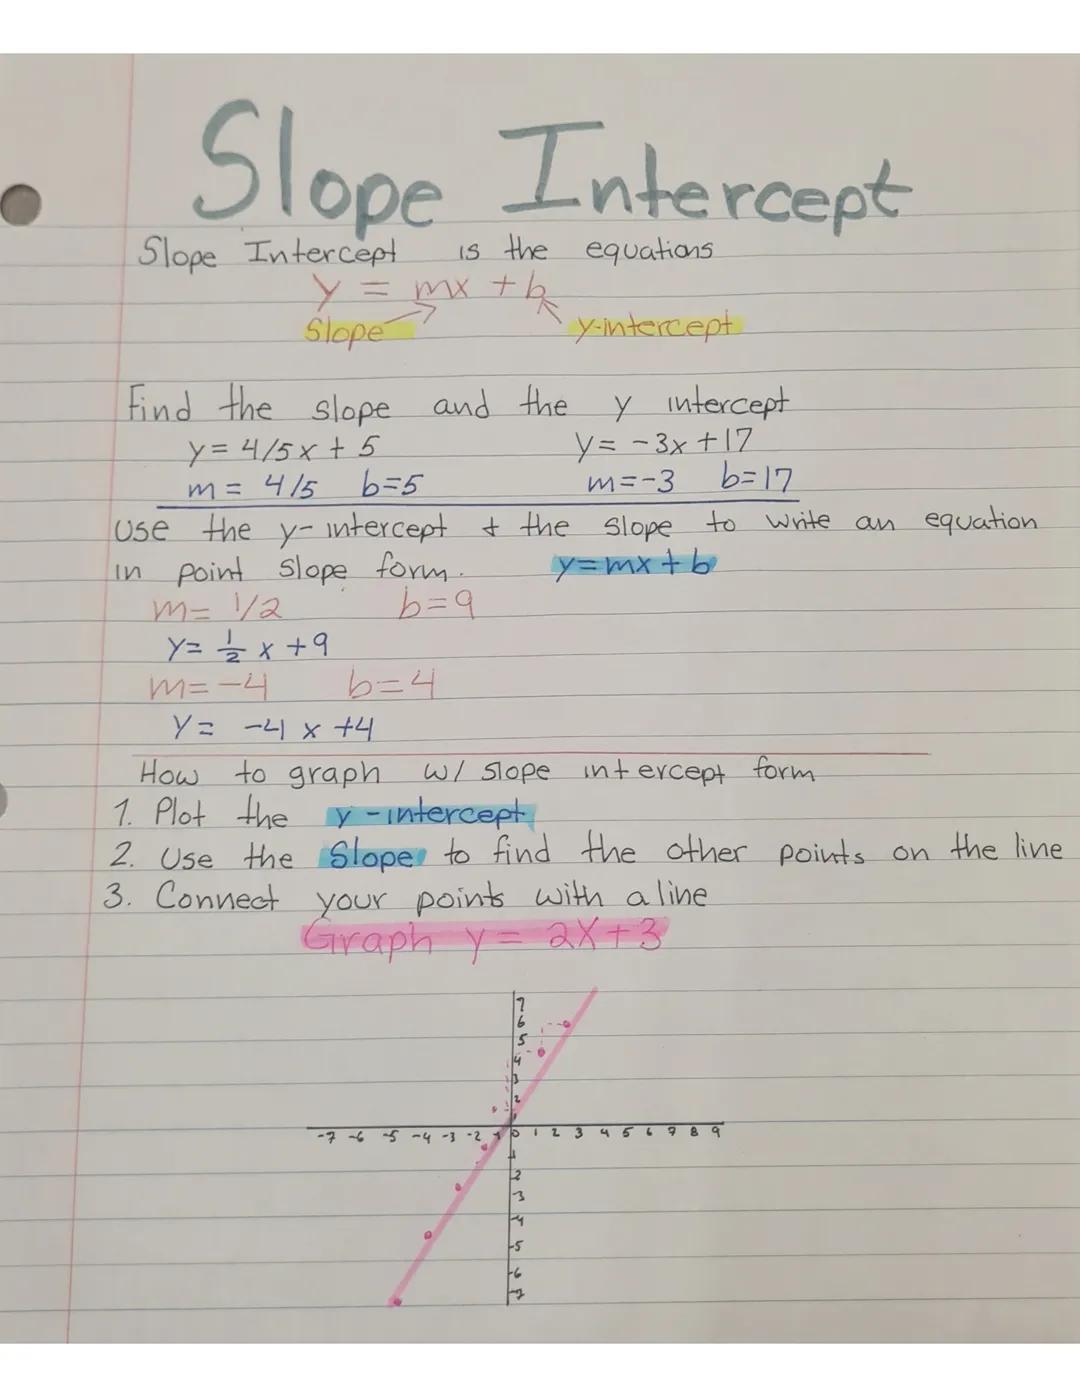 Slope Intercept
Slope Intercept is the equations
y = mx + b
Slope y-intercept
Find the slope and the y intercept
y = 4/5x + 5 y = -3x + 17
m = 4/5 b=5 m=-3 b=17
Use the y-intercept & the slope to write an equation
in point slope form. y=mx+b
m= 1/2 b=9
y= 1/2 x +9
m=-4 b=4
y= -4 x +4
How to graph w/ slope intercept form
1. Plot the y-intercept
2. Use the Slope to find the other points on the line
3. Connect your points with a line
Graph y = 2x+3
7
6
5
4
3
2
1
-7 -6 -5 -4 -3 -2 -1 0 1 2 3 4 5 6 7 8 9
-1
-2
-3
-4
-5
-6
-7